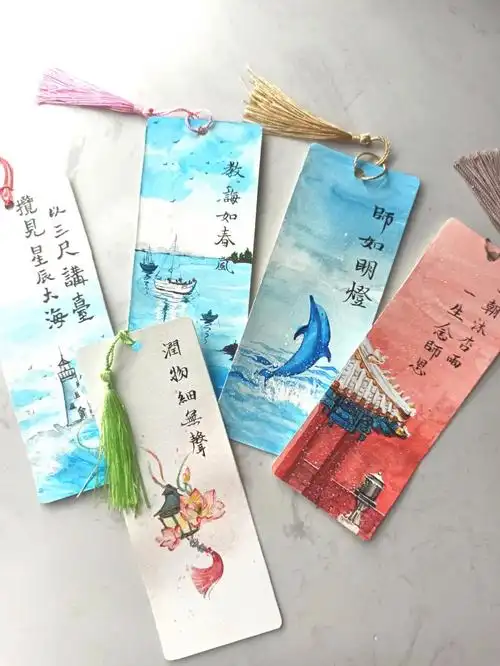 以三尺講臺
攬見星辰大海
教誨如春風
師如明燈
朝沐杏雨
一生念師恩
潤物細無聲